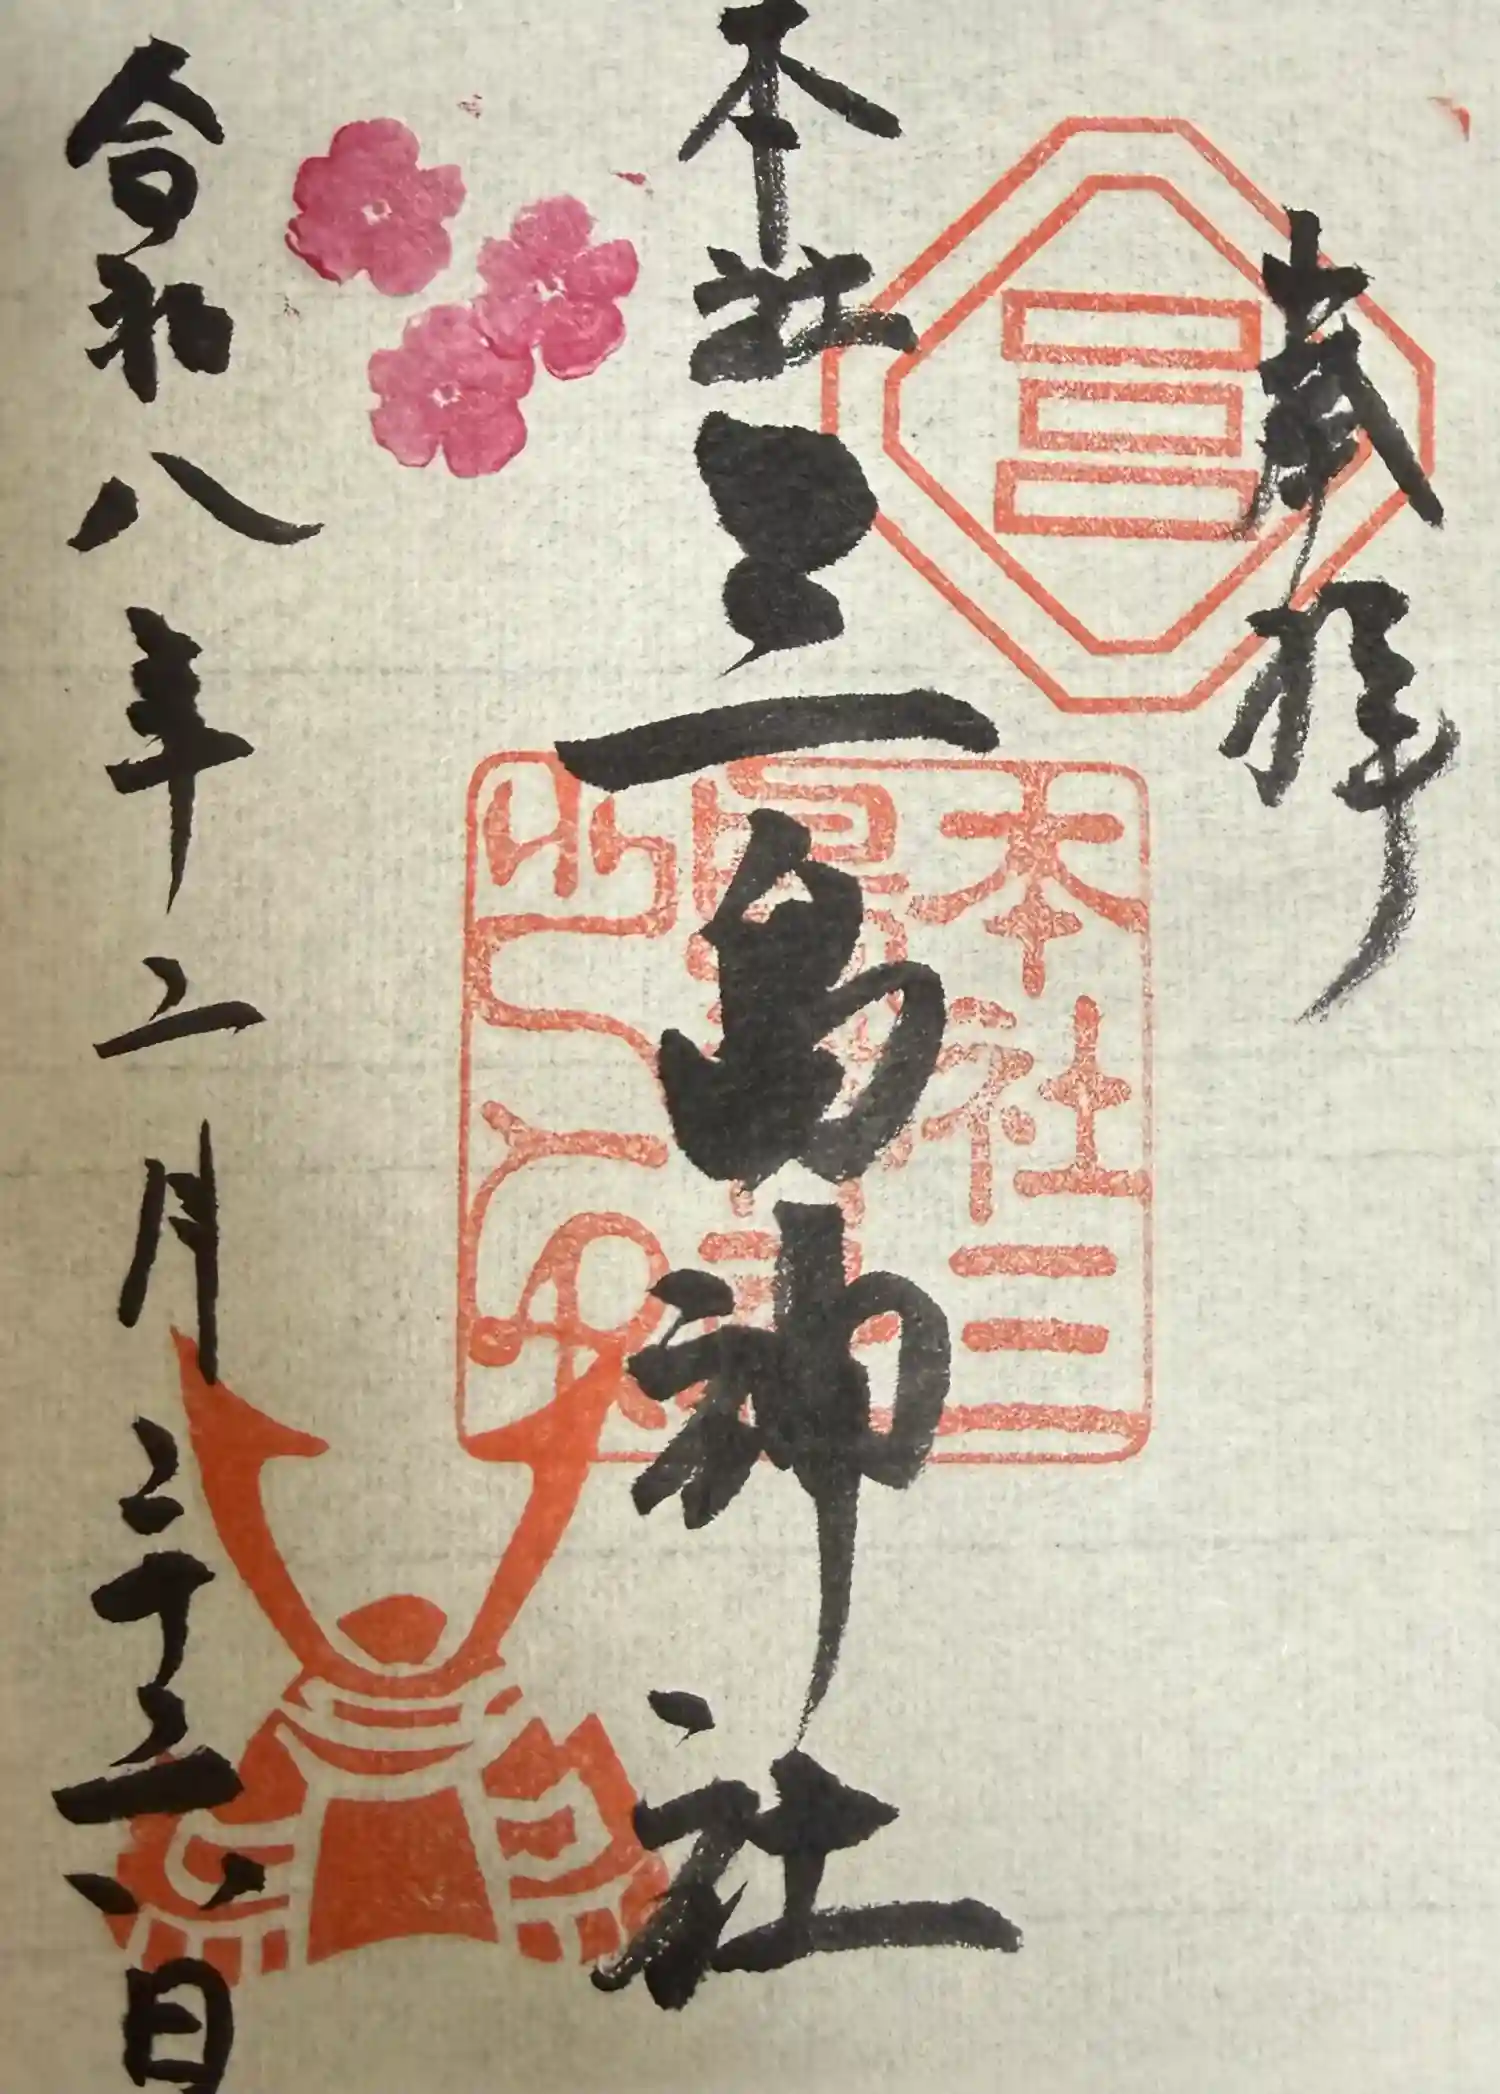 奉拝
本社三島神社
本社三
島神社
之印
令和八年二月二十六日